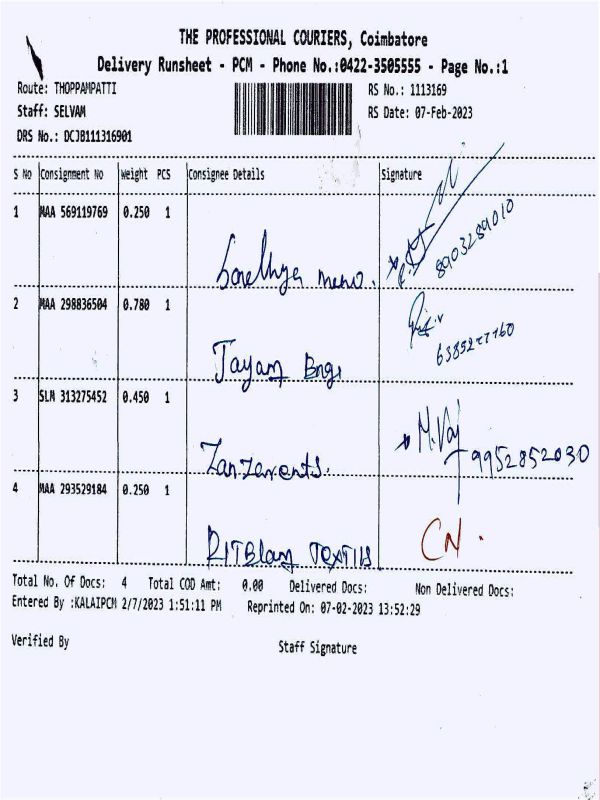 THE PROFESSIONAL COURIERS, Coimbatore
Delivery Runsheet - PCM - Phone No.:0422-3505555 - Page No.:1
Route: THOPPAMPATTI RS No.: 1113169
Staff: SELVAM RS Date: 07-Feb-2023
DRS No.: DCJB111316901
S No Consignment No Weight PCS Consignee Details Signature
1 MAA 569119769 0.250 1
8903289010
2 MAA 298836504 0.780 1
Jayam Engi
3 SLM 313275452 0.450 1
M.Vaj
Zanzanents. 9952852030
4 MAA 293529184 0.250 1
CN.
Total No. Of Docs: 4 Total COD Amt: 0.00 Delivered Docs: Non Delivered Docs:
Entered By :KALAIPCM 2/7/2023 1:51:11 PM Reprinted On: 07-02-2023 13:52:29
Verified By Staff Signature